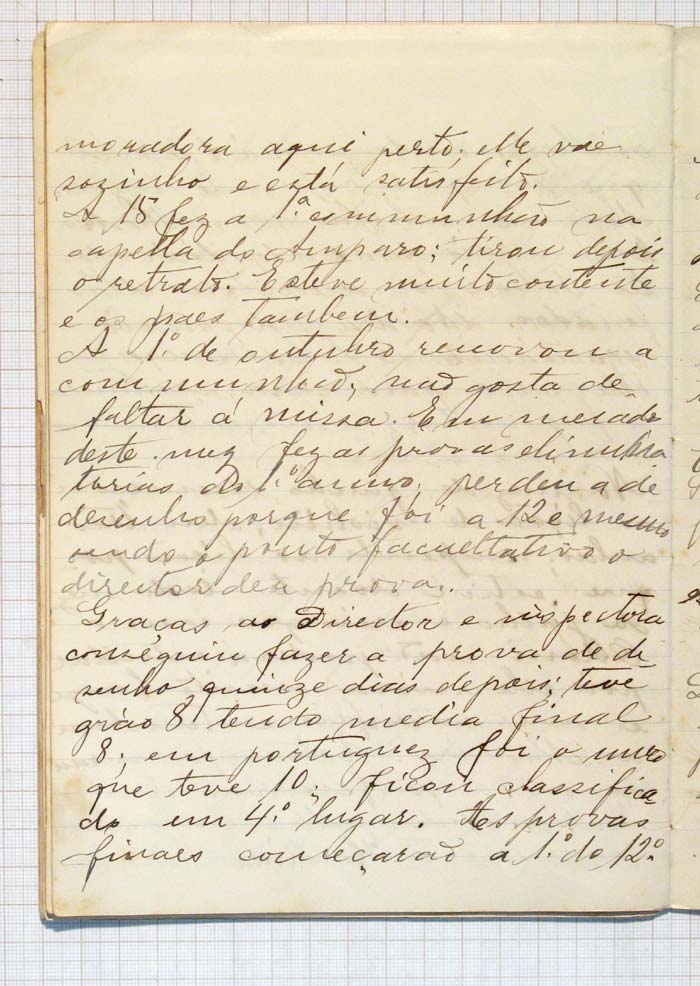 moradora aqui perto. Elle vae
sozinho e está satisfeito.
A 15 fez a 1.ª communhão na
capella do Amparo; tirou depois
o retrato. Esteve muito contente
e os paes tambem.
A 1.º de outubro renovou a
communhão, não gosta de
faltar á missa. Em meiado
deste mez fez as provas elimina
torias do 1.º anno, perdeu a de
desenho porque foi a 12 e mesmo
sendo o ponto facultativo o
director deu prova.
Graças ao Director e inspectora
conseguiu fazer a prova de de
senho quinze dias depois; teve
gráo 8 tendo media final
8; em portuguez foi o unico
que teve 10; ficou classifica
do em 4.º lugar. As provas
finaes começarão a 1.º do 12.º